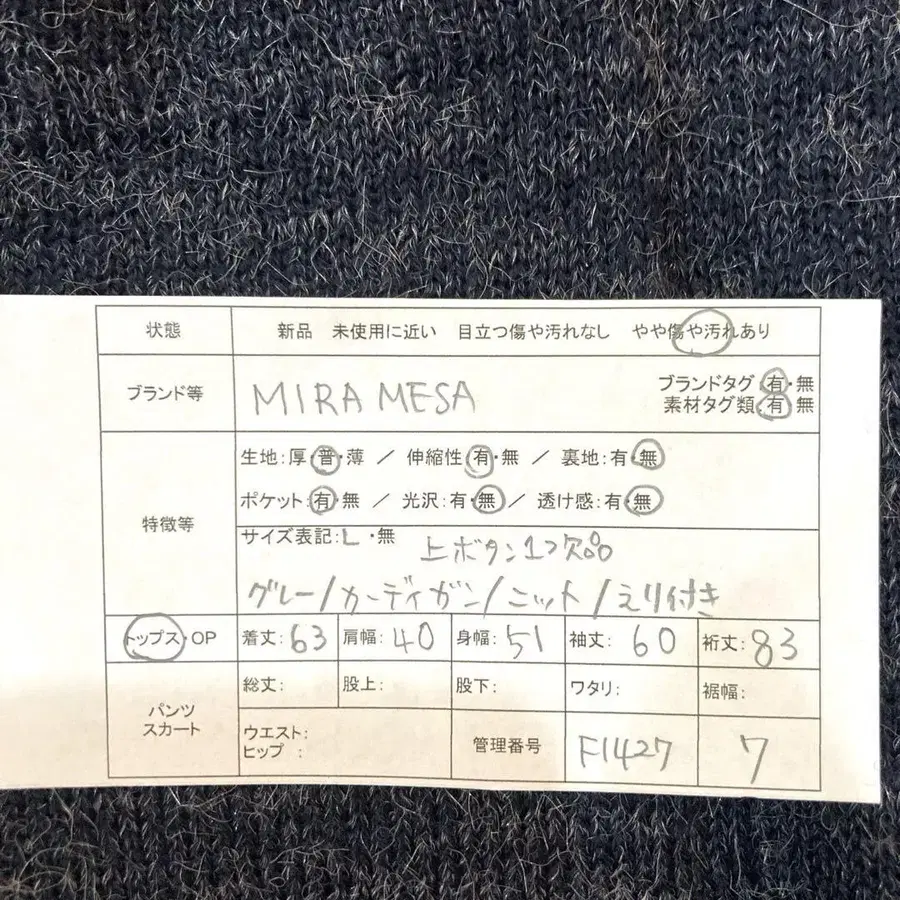 状態 新品 未使用に近い 目立つ傷や汚れなし やや傷や汚れあり
ブランド等 MIRA MESA ブランドタグ:有・無
素材タグ類:有 無
特徴等
生地:厚・普・薄 / 伸縮性:有・無 / 裏地:有・無
ポケット:有・無 / 光沢:有・無 / 透け感:有・無
サイズ表記:L・無 上ボタン1つ欠品
グレー/カーディガン/ニット/えり付き
トップス・OP 着丈:63 肩幅:40 身幅:51 袖丈:60 裄丈:83
パンツ
スカート
総丈: 股上: 股下: ワタリ: 裾幅:
ウエスト:
ヒップ :
管理番号 F1427 7